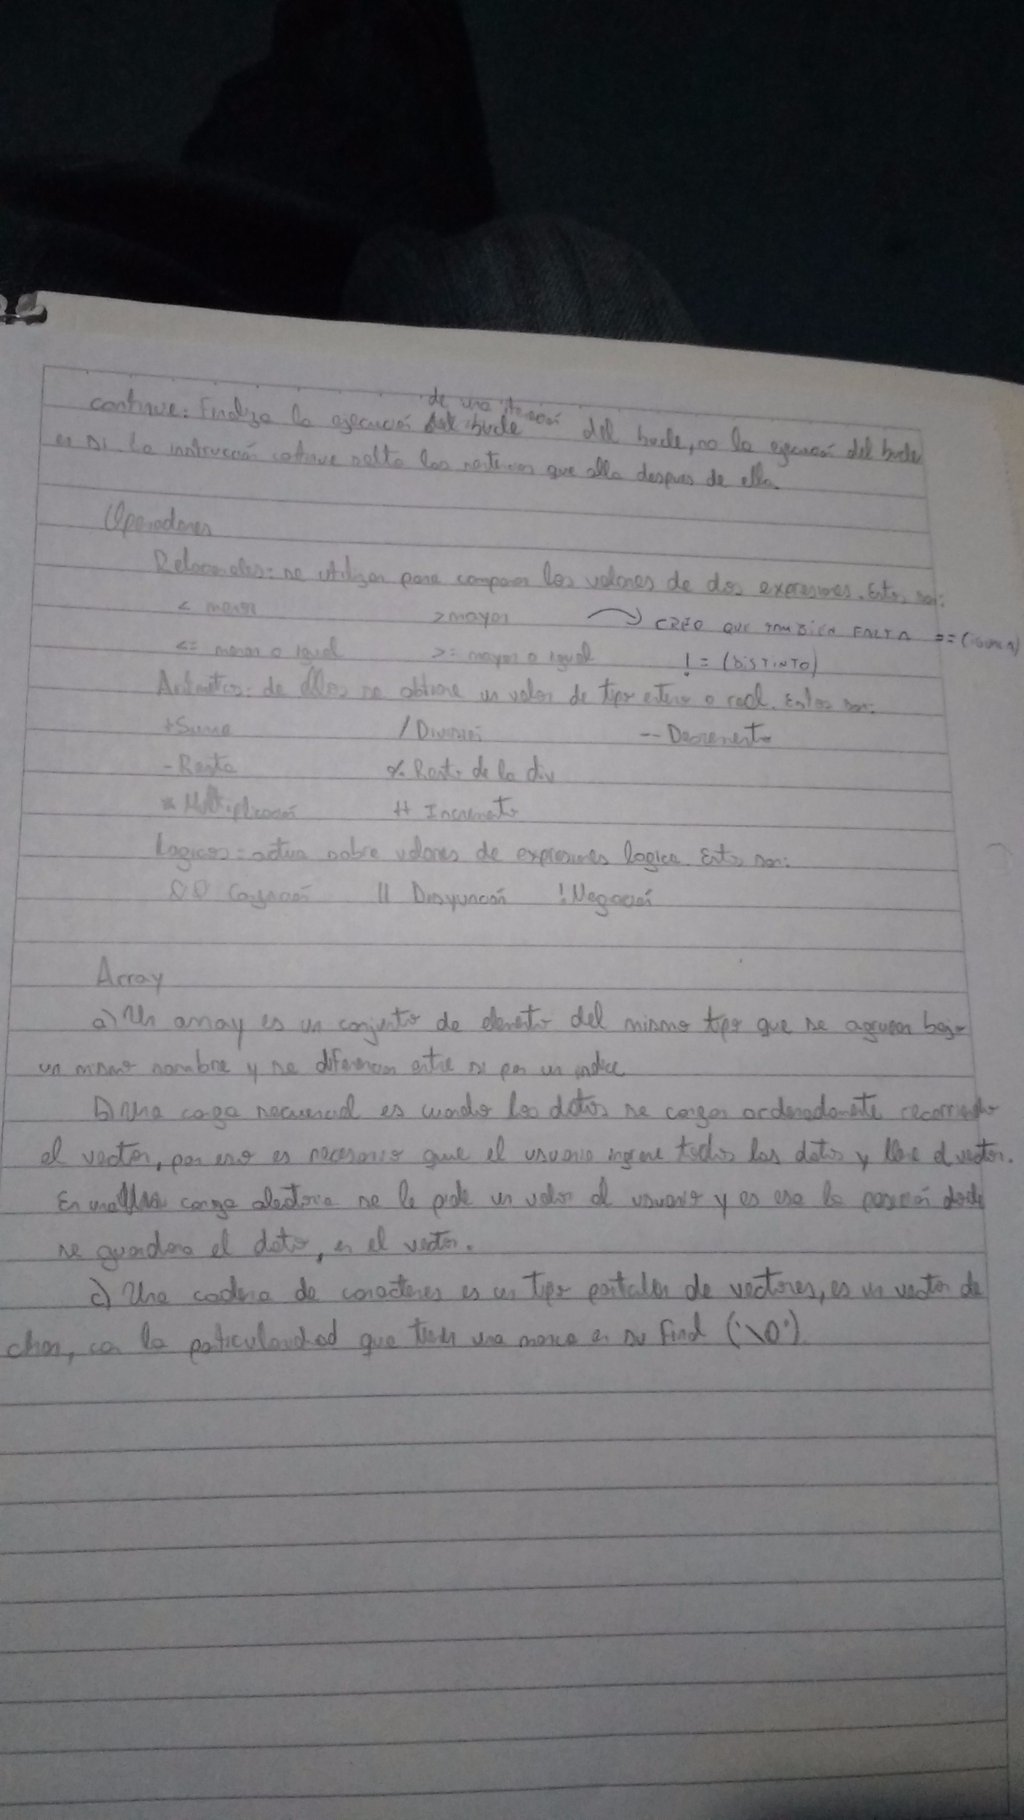 continue: Finaliza la ejecución de una iteración del bucle, no la ejecución del bucle
en si. La instrucción continue salta las sentencias que alla despues de ella.
Operadores
Relacionales: se utilizan para comparar los valores de dos expresiones. Estos son:
< menor >mayor CREO QUE TAMBIEN FALTA ==(IGUAL A)
<= menor o igual >= mayor o igual != (DISTINTO)
Aritmetico: de ellos se obtiene un valor de tipo entero o real. Estos son:
+Suma / División -- Decremento
-Resta % Resto de la div
* Multiplicación ++ Incremento
Logicos: actua sobre valores de expresiones logica. Estos son:
&& Conjunción || Disyunción ! Negación
Array
a) Un array es un conjunto de elemento del mismo tipo que se agrupan bajo
un mismo nombre y se diferencian entre si por un indice
b) Una carga secuencial es cuando los datos se cargan ordenadamente recorriendo
el vector, por eso es necesario que el usuario ingrese todos los datos y llene el vector.
En una carga aleatoria se le pide un valor al usuario y es esa la posición donde
se guardara el dato, en el vector.
c) Una cadena de caracteres es un tipo particular de vectores, es un vector de
char, con la particularidad que tiene una marca en su final ('\0')